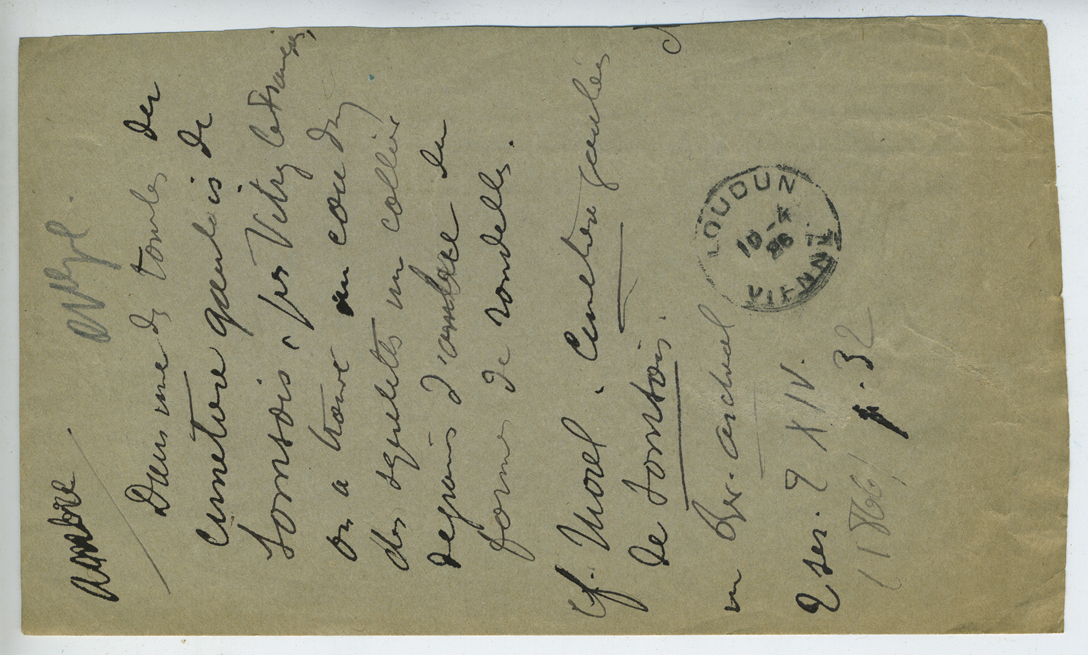 ambre
Dans une des tombes du
cimetière gaulois de
Somsois, près Vitry le François,
on a trouvé au cou d'un
des squelettes un collier
de grains d'ambre en
forme de rondelles.
Cf. Morel. Cimetière gaulois
de Somsois.
in Rev. archeol
2 ser. T XIV.
(1866) p. 32
LOUDUN
10 - X
26
VIENNE